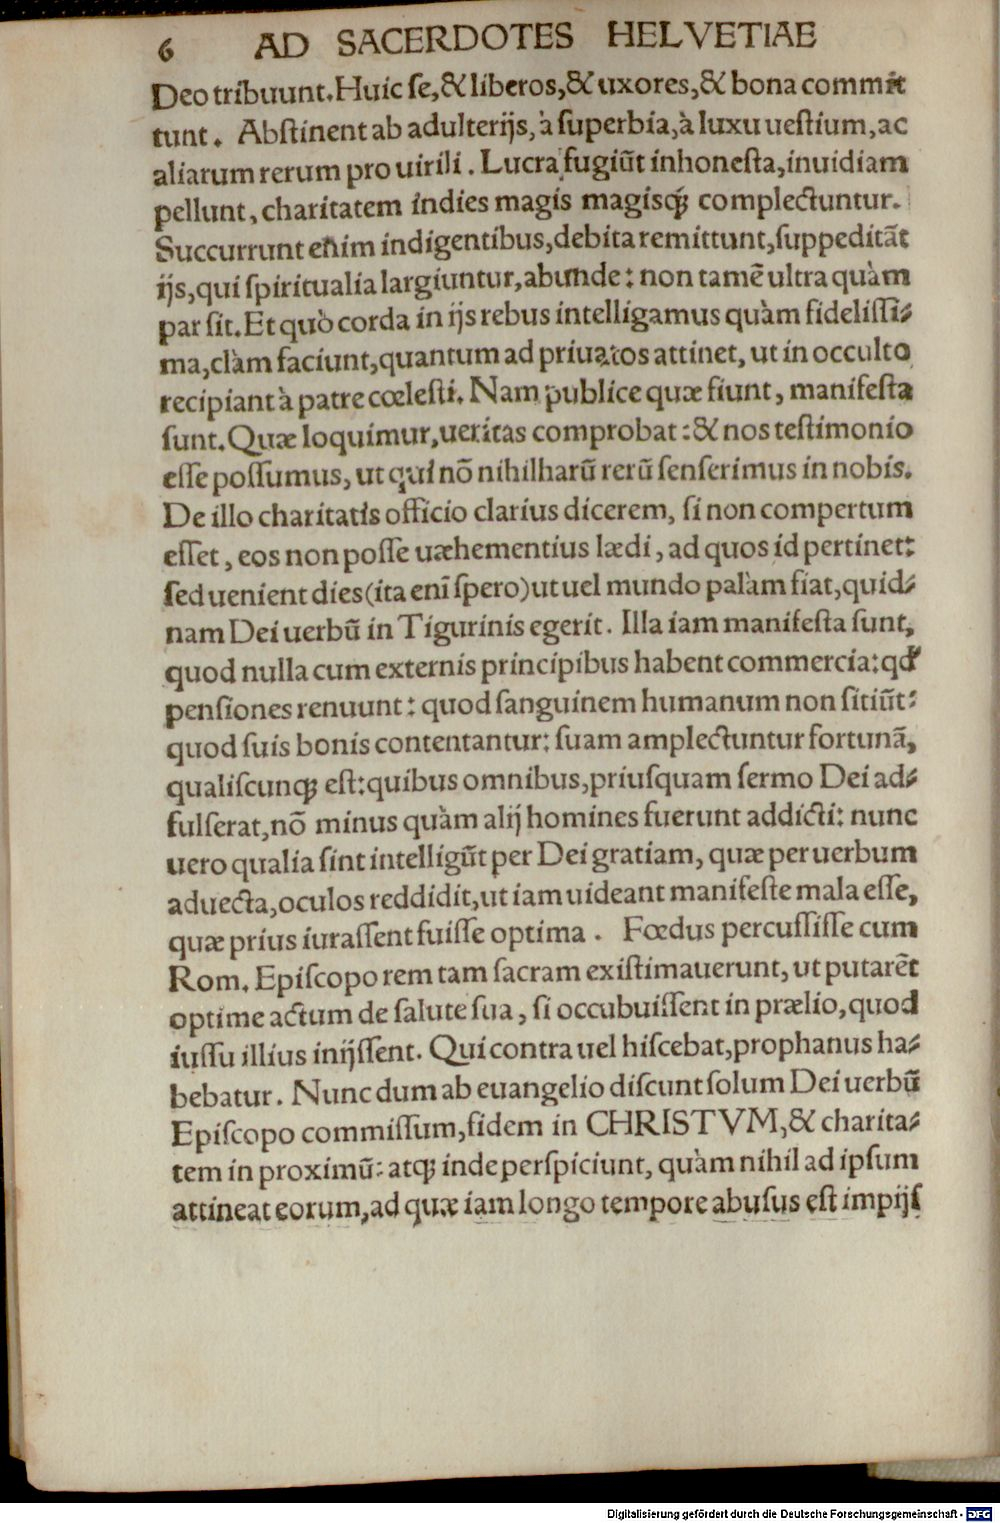 6 AD SACERDOTES HELVETIAE
Deo tribuunt. Huic se, & liberos, & uxores, & bona commit
tunt. Abstinent ab adulterijs, à superbia, à luxu uestium, ac
aliarum rerum pro uirili. Lucra fugiūt inhonesta, inuidiam
pellunt, charitatem indies magis magisq́; complectuntur.
Succurrunt enim indigentibus, debita remittunt, suppeditāt
ijs, qui spiritualia largiuntur, abunde: non tamē ultra quàm
par sit. Et quò corda in ijs rebus intelligamus quàm fidelissi⸗
ma, clàm faciunt, quantum ad priuatos attinet, ut in occulto
recipiant à patre cœlesti. Nam publice quæ fiunt, manifesta
sunt. Quæ loquimur, ueritas comprobat: & nos testimonio
esse possumus, ut qui nō nihil harū rerū senserimus in nobis.
De illo charitatis officio clarius dicerem, si non compertum
esset, eos non posse uæhementius lædi, ad quos id pertinet:
sed uenient dies (ita enī spero) ut uel mundo palàm fiat, quid⸗
nam Dei uerbū in Tigurinis egerit. Illa iam manifesta sunt,
quod nulla cum externis principibus habent commercia: qđ
pensiones renuunt: quod sanguinem humanum non sitiūt:
quod suis bonis contentantur: suam amplectuntur fortunā,
qualiscunq; est: quibus omnibus, priusquam sermo Dei ad⸗
fulserat, nō minus quàm alij homines fuerunt addicti: nunc
uero qualia sint intelligūt per Dei gratiam, quæ per uerbum
aduecta, oculos reddidit, ut iam uideant manifeste mala esse,
quæ prius iurassent fuisse optima. Fœdus percussisse cum
Rom. Episcopo rem tam sacram existimauerunt, ut putarēt
optime actum de salute sua, si occubuissent in prælio, quod
iussu illius inijssent. Qui contra uel hiscebat, prophanus ha⸗
bebatur. Nunc dum ab euangelio discunt solum Dei uerbū
Episcopo commissum, fidem in CHRISTVM, & charita⸗
tem in proximū: atq; inde perspiciunt, quàm nihil ad ipsum
attineat eorum, ad quæ iam longo tempore abusus est impijs
Digitalisierung gefördert durch die Deutsche Forschungsgemeinschaft - DFG